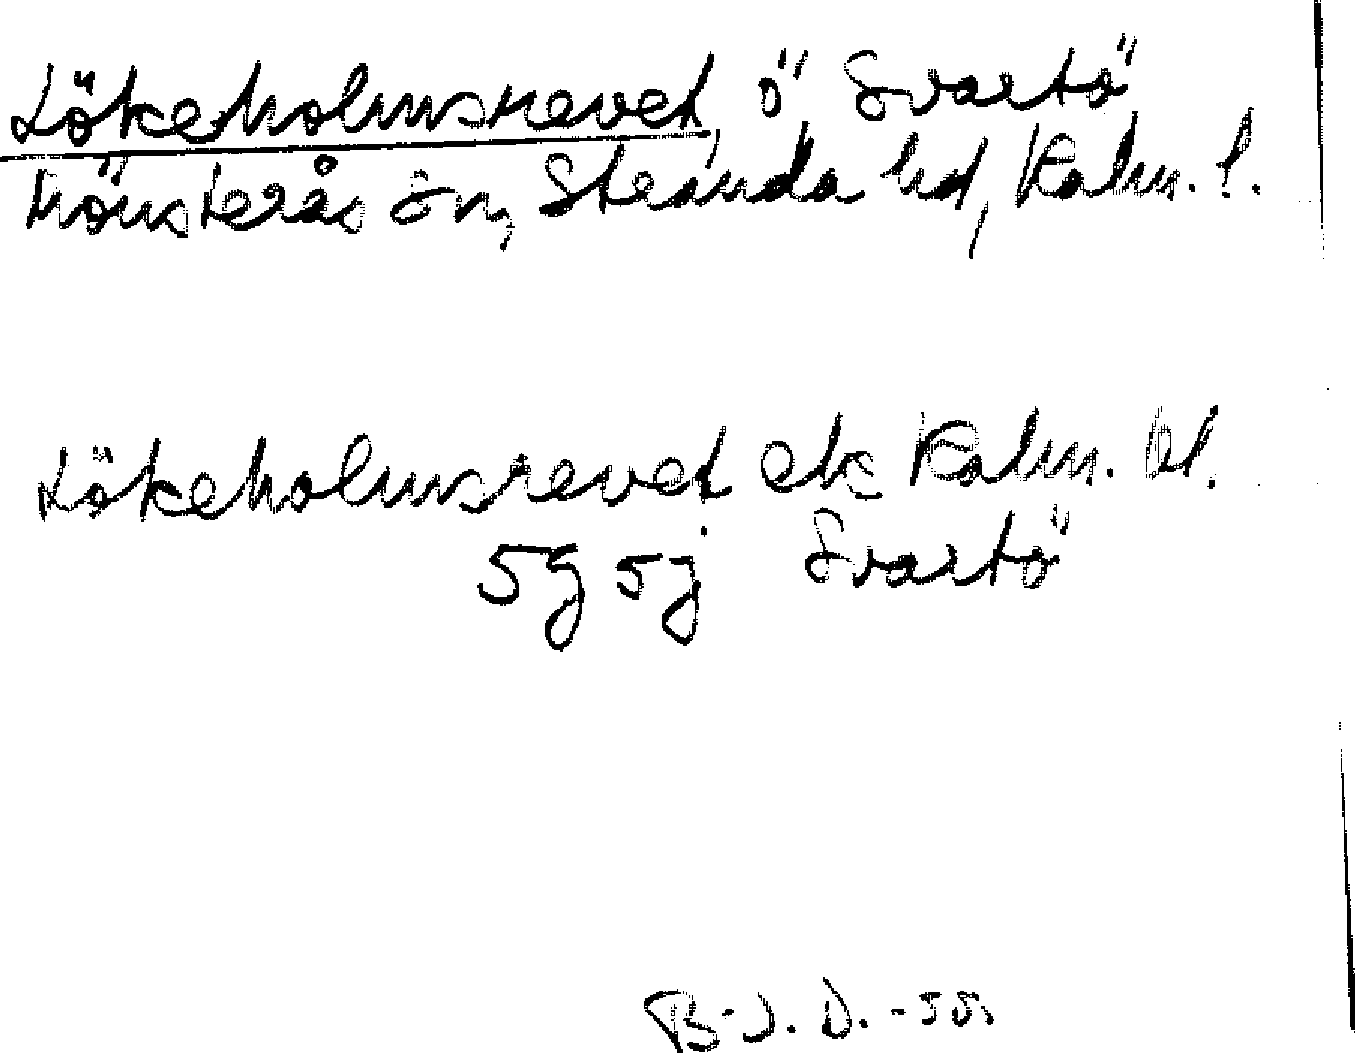 Lökeholmsrevet, ö Svartö
Mönsterås sn, Stranda hd, Kalm. l.
Lökeholmsrevet ek Kalm. bl.
5g 5j Svartö
B-J. D. -50.